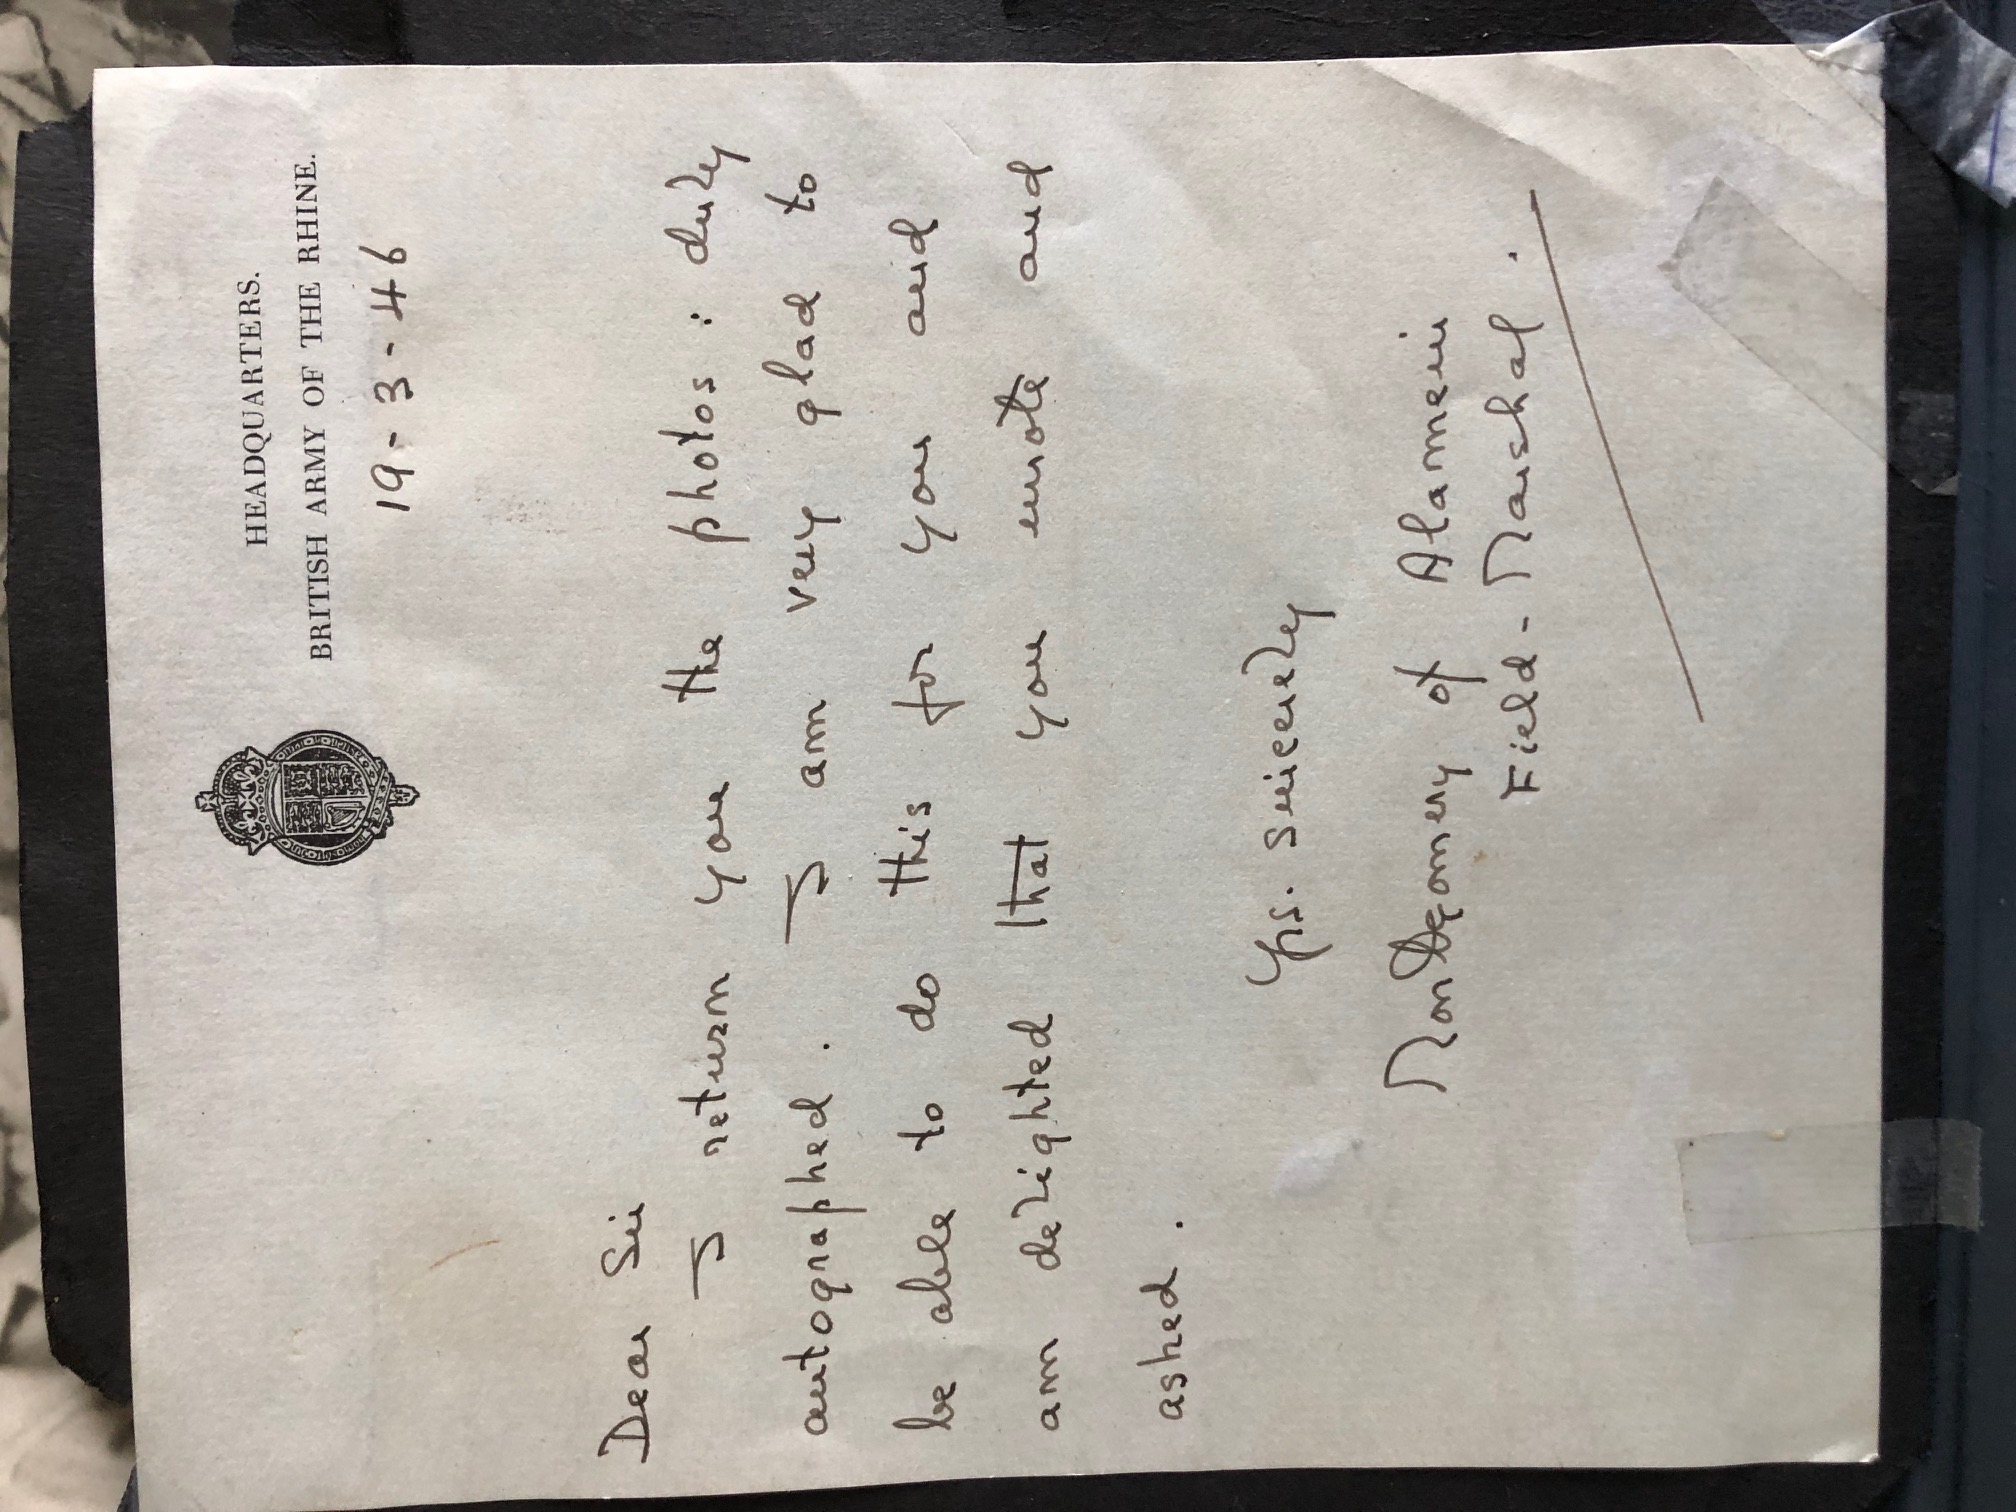 HEADQUARTERS.
BRITISH ARMY OF THE RHINE.
19-3-46
Dear Sir
I return you the photos: duly
autographed. I am very glad to
be able to do this for you and
am delighted that you wrote and
asked.
Yrs. sincerely
Montgomery of Alamein
Field-Marshal.